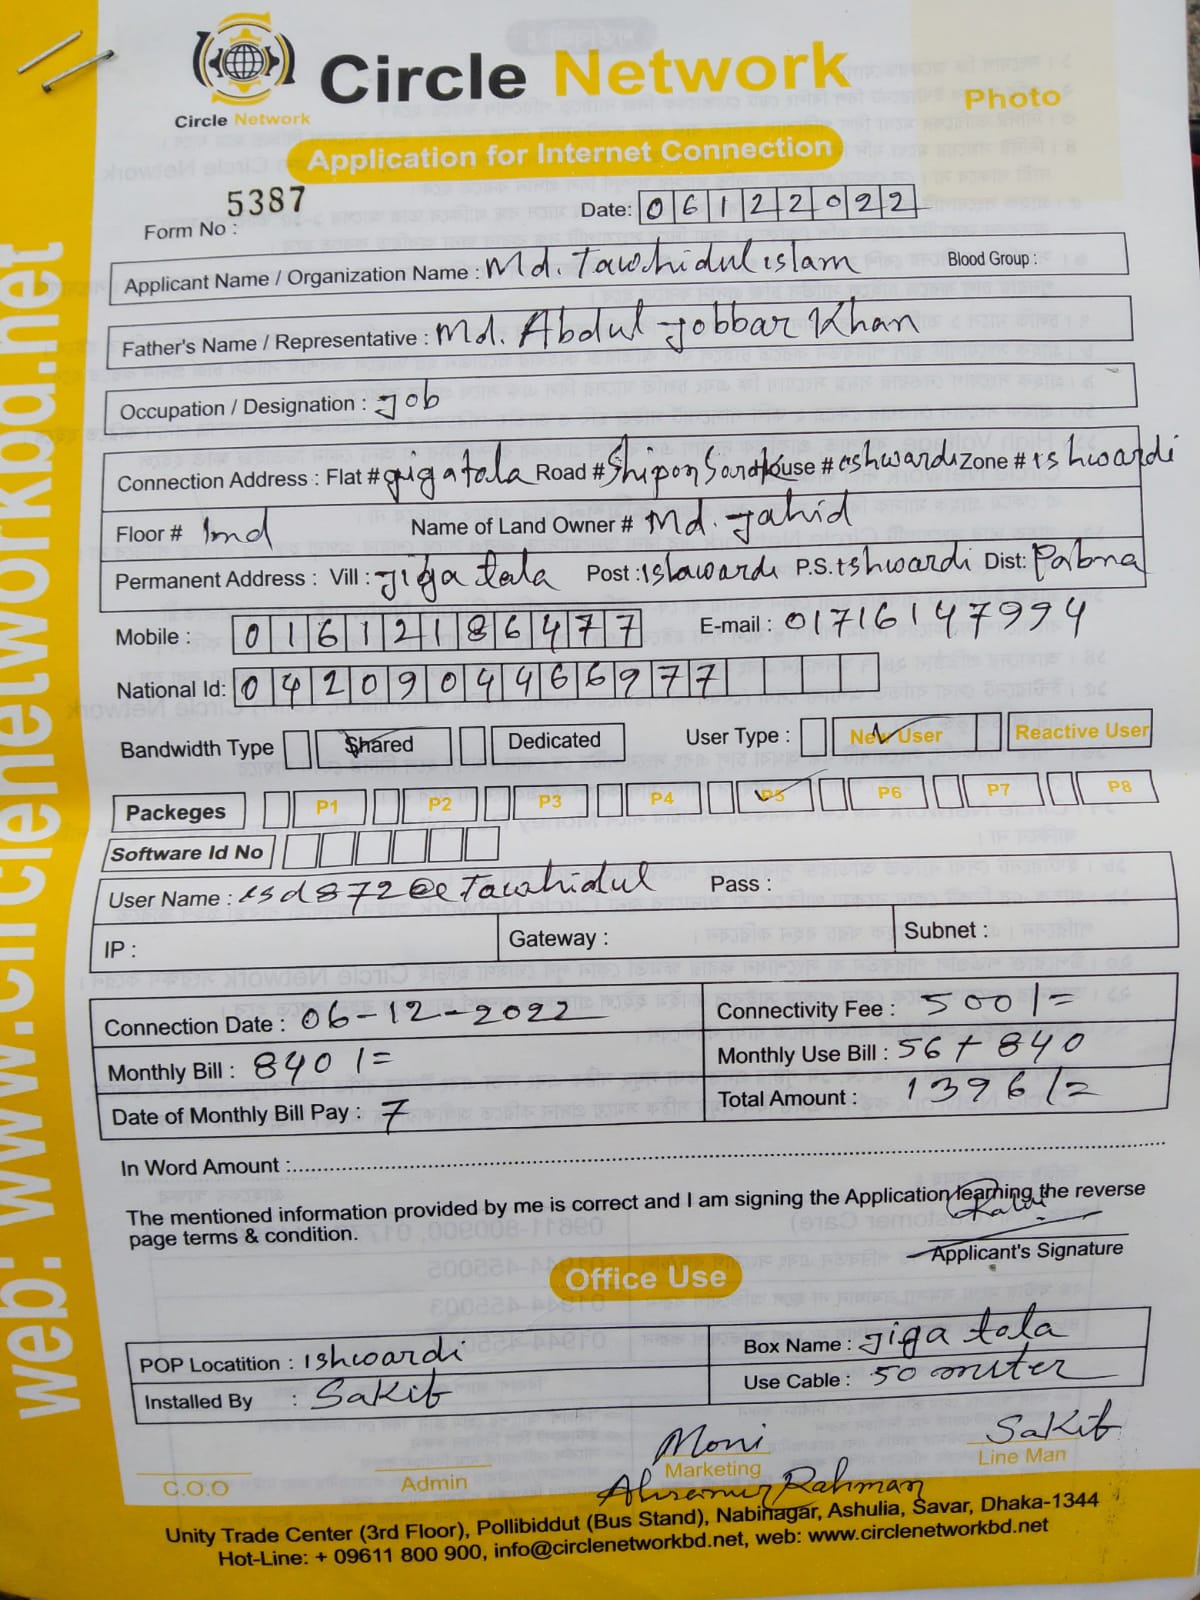 Circle Network
Circle Network
Photo
Application for Internet Connection
5387
Form No :
Date: 06122022
Applicant Name / Organization Name : Md. Tawhidul islam Blood Group :
Father's Name / Representative : Md. Abdul Jobbar Khan
Occupation / Designation : Job
Connection Address : Flat # Jigatala Road # Shipon House # eshwardi Zone # ishwardi
Floor # Name of Land Owner # Md. Jahid
Permanent Address : Vill : Jigatala Post : Ishawardi P.S. ishwardi Dist: Pabna
Mobile : 01612186477 E-mail : 01716147994
National Id: 0420904466977
Bandwidth Type Shared Dedicated User Type : New User Reactive User
Packeges P1 P2 P3 P4 P5 P6 P7 P8
Software Id No
User Name : esd872@ctawhidul Pass :
IP : Gateway : Subnet :
Connection Date : 06-12-2022 Connectivity Fee : 500/=
Monthly Bill : 840/= Monthly Use Bill : 56+840
Date of Monthly Bill Pay : 7 Total Amount : 1396/=
In Word Amount :
The mentioned information provided by me is correct and I am signing the Application learning the reverse
page terms & condition.
Applicant's Signature
Office Use
POP Locatition : Ishwardi Box Name : Jiga tala
Installed By : Sakib Use Cable : 50 miter
Moni Sakib
C.O.O Admin Marketing Line Man
Rahman
Unity Trade Center (3rd Floor), Pollibiddut (Bus Stand), Nabinagar, Ashulia, Savar, Dhaka-1344
Hot-Line: + 09611 800 900, info@circlenetworkbd.net, web: www.circlenetworkbd.net
web: www.circlenetworkbd.net